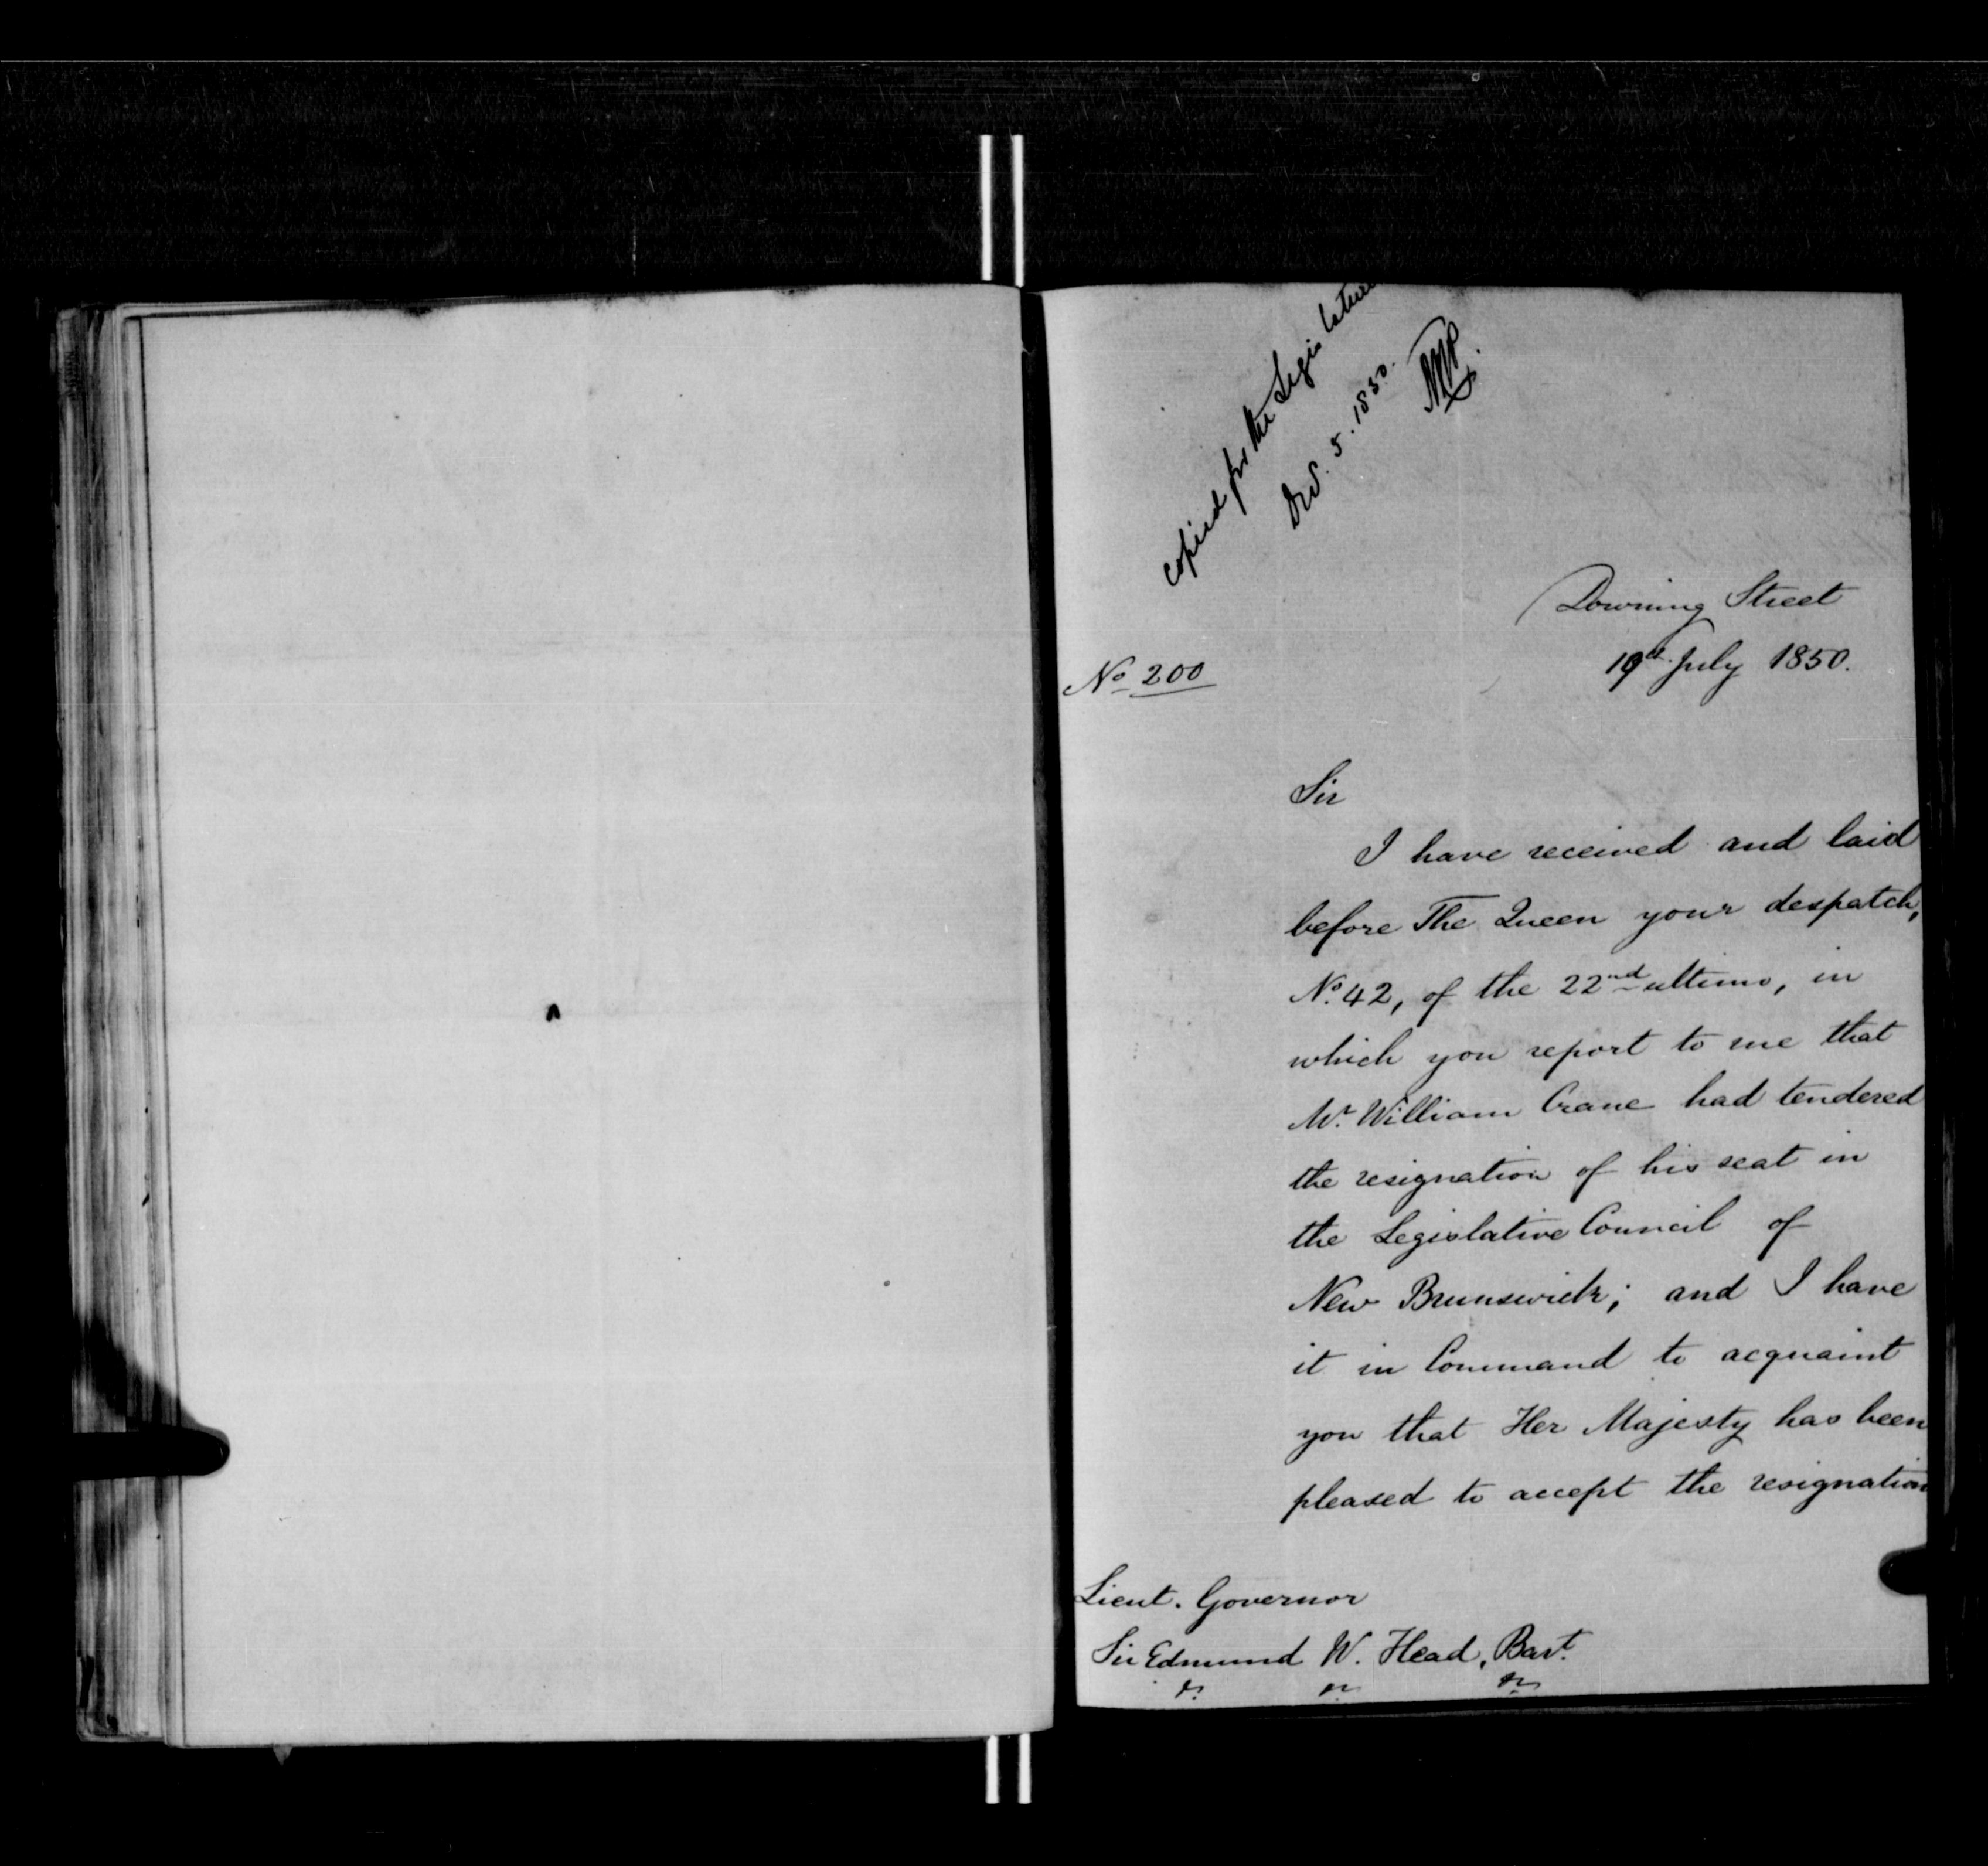 copied for the Legislature
Dec. 5. 1850.
Downing Street
19th July 1850.
No 200
Sir
I have received and laid
before The Queen your despatch,
No. 42, of the 22nd ultimo, in
which you report to me that
Mr. William Crane had tendered
the resignation of his seat in
the Legislative Council of
New Brunswick; and I have
it in Command to acquaint
you that Her Majesty has been
pleased to accept the resignation
Lieut. Governor
Sir Edmund W. Head, Bart.